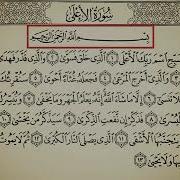 سُورَةُ الأَعْلَى
بِسْمِ اللَّهِ الرَّحْمَٰنِ الرَّحِيمِ
سَبِّحِ اسْمَ رَبِّكَ الْأَعْلَى ١ الَّذِي خَلَقَ فَسَوَّىٰ ٢ وَالَّذِي قَدَّرَ فَهَدَىٰ
٣ وَالَّذِي أَخْرَجَ الْمَرْعَىٰ ٤ فَجَعَلَهُ غُثَاءً أَحْوَىٰ ٥ سَنُقْرِئُكَ
فَلَا تَنسَىٰ ٦ إِلَّا مَا شَاءَ اللَّهُ إِنَّهُ يَعْلَمُ الْجَهْرَ وَمَا يَخْفَىٰ ٧ وَنُيَسِّرُكَ
لِلْيُسْرَىٰ ٨ فَذَكِّرْ إِن نَّفَعَتِ الذِّكْرَىٰ ٩ سَيَذَّكَّرُ مَن يَخْشَىٰ ١٠
وَيَتَجَنَّبُهَا الْأَشْقَى ١١ الَّذِي يَصْلَى النَّارَ الْكُبْرَىٰ ١٢ ثُمَّ لَا يَمُوتُ
فِيهَا وَلَا يَحْيَىٰ ١٣